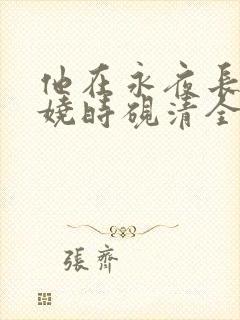 他在永夜長
嬈時硯清全
張齊